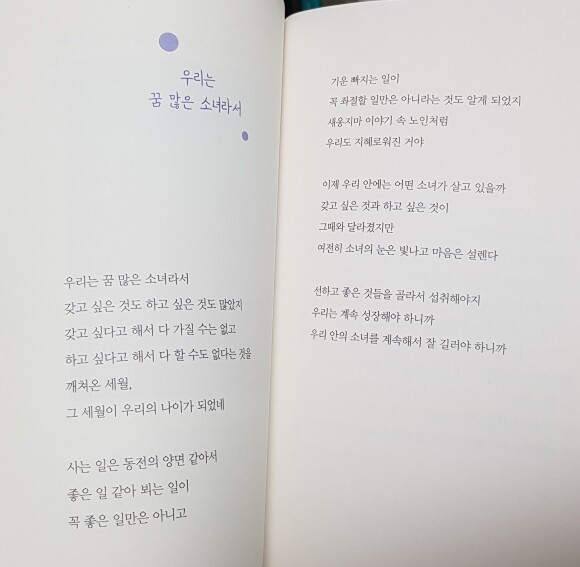 우리는
꿈 많은 소녀라서
우리는 꿈 많은 소녀라서
갖고 싶은 것도 하고 싶은 것도 많았지
갖고 싶다고 해서 다 가질 수는 없고
하고 싶다고 해서 다 할 수도 없다는 것을
깨쳐온 세월,
그 세월이 우리의 나이가 되었네
사는 일은 동전의 양면 같아서
좋은 일 같아 뵈는 일이
꼭 좋은 일만은 아니고
기운 빠지는 일이
꼭 좌절할 일만은 아니라는 것도 알게 되었지
새옹지마 이야기 속 노인처럼
우리도 지혜로워진 거야
이제 우리 안에는 어떤 소녀가 살고 있을까
갖고 싶은 것과 하고 싶은 것이
그때와 달라졌지만
여전히 소녀의 눈은 빛나고 마음은 설렌다
선하고 좋은 것들을 골라서 섭취해야지
우리는 계속 성장해야 하니까
우리 안의 소녀를 계속해서 잘 길러야 하니까